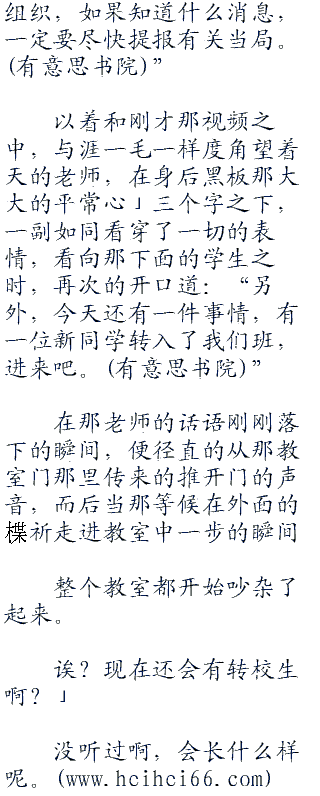 组织，如果知道什么消息，
一定要尽快提报有关当局。
(有意思书院)”
以着和刚才那视频之
中，与涯一毛一样度角望着
天的老师，在身后黑板那大
大的平常心」三个字之下，
一副如同看穿了一切的表
情，看向那下面的学生之
时，再次的开口道：“另
外，今天还有一件事情，有
一位新同学转入了我们班，
进来吧。(有意思书院)”
在那老师的话语刚刚落
下的瞬间，便径直的从那教
室门那里传来的推开门的声
音，而后当那等候在外面的
楪祈走进教室中一步的瞬间
整个教室都开始吵杂了
起来。
诶？现在还会有转校生
啊？」
没听过啊，会长什么样
呢。(www.hcihci66.com)